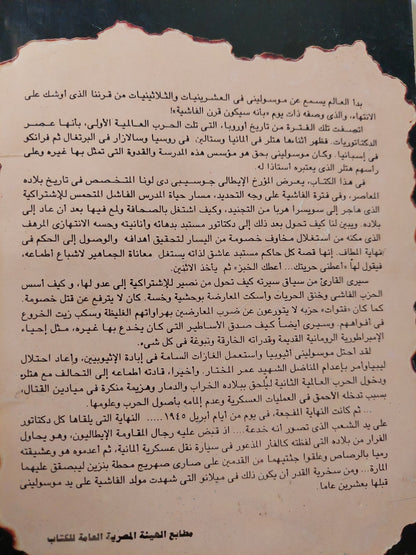 بدأ العالم يسمع عن موسولينى فى العشرينيات والثلاثينيات من قرننا الذى أوشك على
الانتهاء، والذى وصفه ذات يوم «بأنه سيكون قرن الفاشية»!
اتصفت تلك الفترة من تاريخ أوروبا، التى تلت الحرب العالمية الأولى، بأنها عصر
الدكتاتوريات. فظهر أثناءها هتلر فى ألمانيا وستالين فى روسيا وسالازار فى البرتغال ثم فرانكو
فى إسبانيا. وكان موسولينى بحق هو مؤسس هذه المدرسة والقدوة التى تمثل بها غيره وعلى
رأسهم هتلر الذى يعتبره أستاذا له.
فى هذا الكتاب، يعرض المؤرخ الإيطالى جوسيبى دى لونا المتخصص فى تاريخ بلاده
المعاصر، وفى فترة الفاشية على وجه التحديد، مسار حياة المدرس الفاشل المتحمس للإشتراكية
الذى هاجر إلى سويسرا هربا من التجنيد، وكيف اشتغل بالصحافة ولمع فيها بعد أن عاد إلى
بلاده. ويبين لنا كيف تحول بعد ذلك إلى دكتاتور مستبد بدهائه وأنانيته وحسه الانتهازى المرهف
الذى مكنه من استغلال مخاوف خصومة من اليسار لتحقيق أهدافه والوصول إلى الحكم فى
نهاية المطاف. إنها قصة كل حاكم مستبد عاشق لذاته يستغل معاناة الجماهير لاشباع أطماعه،
فيقول لها «أعطنى حريتك... أعطك الخبز» ثم يأخذ الاثنين.
سيرى القارئ من سياق سيرته كيف تحول من نصير للإشتراكية إلى عدو لها، و كيف أسس
الحزب الفاشى وخنق الحريات وأسكت المعارضة بوحشية وخسة. كان لا يترفع عن قتل خصومة.
كما كان «فتوات» حزبه لا يتورعون عن ضرب المعارضين بهراواتهم الغليظة وسكب زيت الخروع
فى أفواههم. وسيرى أيضاً كيف صدق الأساطير التى كان يخدع بها غيره، مثل إحياء
الإمبراطورية الرومانية القديمة وقدراته الخارقة ونبوغة فى كل شىء.
لقد احتل موسولينى أثيوبيا واستعمل الغازات السامة فى إبادة الإثيوبيين، وأعاد احتلال
ليبيا وأمر بإعدام المناضل الشهير عمر المختار. وأخيرا، قادته أطماعه إلى التحالف مع هتلر
ودخول الحرب العالمية الثانية ليلحق ببلاده الخراب والدمار وهزيمة منكرة فى ميادين القتال،
بسبب تدخله الأحمق فى العمليات العسكرية وعدم إلمامه بأصول الحرب وعلومها.
... ثم كانت النهاية المفجعة، فى يوم من أيام أبريل ١٩٤٥ ..... النهاية التى يلقاها كل دكتاتور
على يد الشعب الذى تصور أنه خدعة.... اذ قبض عليه رجال المقاومة الإيطاليون، وهو يحاول
الفرار من بلاده التى لفظته كالفأر المذعور فى سيارة نقل عسكرية ألمانية، ثم أعدموه هو وعشيقته
رميا بالرصاص وعلقوا جثتيهما من القدمين على صارى صهريج محطة بنزين ليبصق عليهما
المارة... ومن سخرية القدر أن يكون ذلك فى ميلانو التى شهدت مولد الفاشية على يد موسولينى
قبلها بعشرين عاما.
مطابع الهيئة المصرية العامة للكتاب